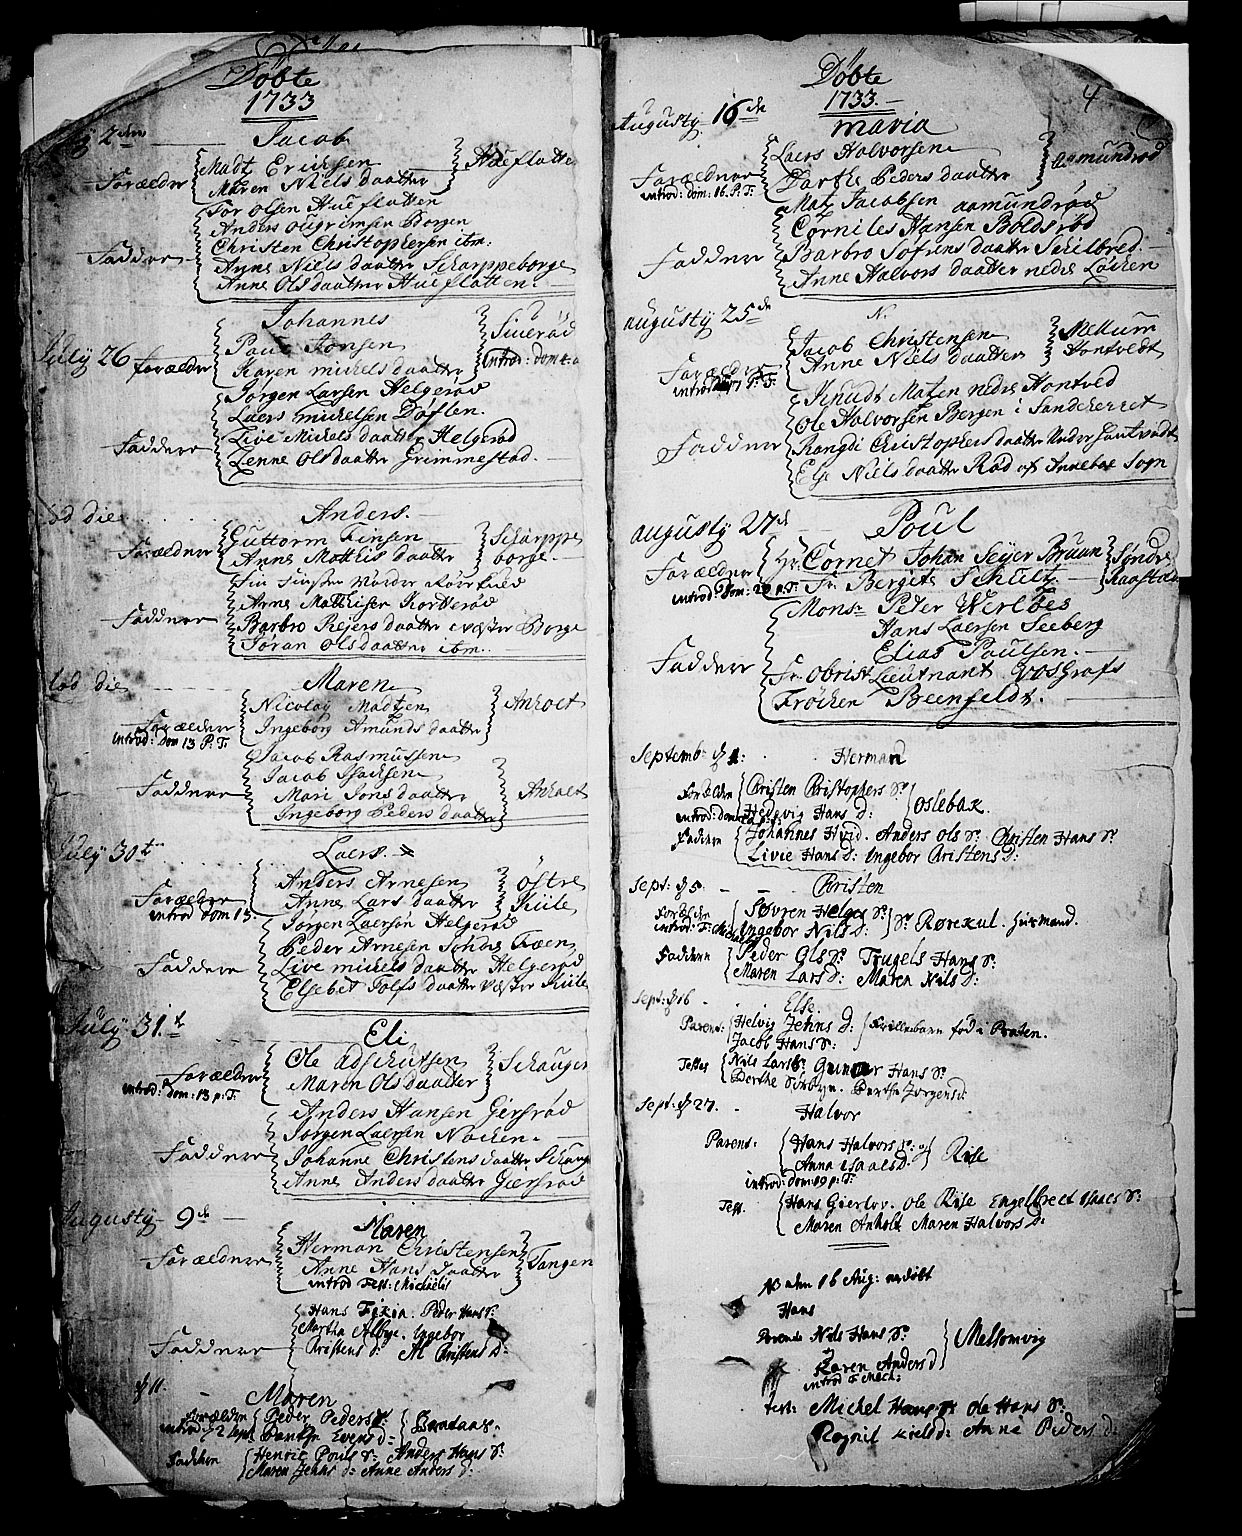 Döbte
1733
July 2den
Jacob
Forældre
Madz Erichsen
Maren Niels daatter
Hueflatten
Faddere
Tor Olsen Hueflatten
Anders Ougrimsen Borgen
Christen Christophersen ibm:
Anne Niels daatter Scharppeborge
Anne Olsdaatter Hueflatten.
July 26
Johannes
forældre
Paul Jonsen
Karen michels daatter
Siuerød
introd: dom
Faddere
Jørgen Larsen Helgerød
Laers michelsen Døflen.
Live Michels daatter Helgerød
Lenne Olsdaatter Grimmestad.
Eod die
Anders.
Forældre
Guttorm Finsen
Anne Mathis daatter
Scharppe
borge
Faddere
Arne Matthisen Kortterød
Barbro Rejers daatter væster Borge
Jøran Olsdaatter ibm.
Eod die
Maren
Forældre
introd: Dom 13 P. T.
Nicolay Madtzen
Ingeborg Amunds daatter
Anholt
Faddere
Jacob Rasmussen
Jacob Isachsen
Mari Jons daatter
Ingeborg Peders daatter
Anholt
July 30t
Laers.
Forældre
introd dom 13.
Anders Arnesen
Anne Lars daatter
östre
Kiile
Faddere
Jørgen Laersøn Helgerød
Peder Arnesen Søndre Foen
Live michels daatter Helgerød
Elsebet Tolfs daatter væster Kiile
July 31.t
Eli
Forældre
introd: dom: 13 p: T.
Ole Adschutsen
Maren Olsdaatter
Schaugen
Faddere
Anders Hansen Giersrød
Jørgen Laersen Nachen.
Johanne Christens daatter Schaug
Anne Anders daatter Giersrød
Augusty 9de
Maren
Forældre
Herman Christensen
Anne Hans daatter
introd Fest: Michaelis
Tangen
Faddere
Hans Peder Hans S:
Martha Ingebor
Christens d: M Cristens D:
d 11.
Maren
Forældre
introd: 2 Sept
Peder Peders S:
Evens d:
Faddere
Henric Pouls S: Anders Hans S:
Maren Jehns d: Anne Anders d:
Döbte
1733.
4
Augusty 16de
maria
Forældre
introd: dom: 16. P. T.
Laers Halvorsen
Dorthe Peders daatter
Aamundrød
Faddere
Matz Jacobsen aamundrød
Corniles Hansen Boldsrød
Barbro Sofrens daatter Schilbred.
Anne Halvors daatter nedre Løchen
augusty 25de
N.
Forældre
introd P: T:
Jacob Christensen
Anne Niels daatter
Mellum
Hontvedt
Faddere
Knudt Matzen nedre Hontved
Ole Halvorsen Bergen i Sandeherret
Rangdi Christophers daatter Neder hontvedt
Else Niels daatter Rød af Annebøe Sogn
augusty 27d
Poul
Forældre
introd: Dom: 20 p. T.
Hr. Cornet Johan Seyer Bruun
Fr. Bergete Schult.
Søndre
Raastad
Faddere
Monsr Peter Werløes
Hans Laersen Seeberg
Elias Paulsen.
Fr. Obrist Lieutnant VosGrafs
Frøchen Beenfeldt.
Septemb: d 1:
Herman
Foreldre
introd: dom
Cristen Cristophers S:
Hedevig Hans d:
Oslebak
Faddere
Johannes Hvid. Anders Ols S: Christen Hans S:
Livie Hans d: Ingebor Cristens D:
Sept: d 5.
Cristen
Foreldre
introd: F: Mich:
Søvren Helges S:
Ingebor Nils d:
Rørekul. Huusmand.
Faddere
Peder Ols S: Trugels Hans S:
Maren Lars d: Maren Nils d:
Sept: d 16
Else
Parent:
Helvig Jehns d:
Jacob Hans S:
Frillebarn fød i Praten.
Testes
Nils Lars S: Gunder Hans S:
Berthe Jørgens d
Sept: d 27.
Halvor
Parent:
Hans Halvors S:
Anna Isaacs d.
introd: dom: 19 p: T:
Rise
Test.
Hans Gierlov. Ole Rise Engelbrect Isaacs S:
Maren Anholt Maren Halvors d:
NB den 16 Aug: er døbt
Hans
Parents Nils Hans S:
Karen Anders d
introd F Mich:
Melsomvig
Test: Michel Hans S: Ole Hans S:
Rognil Kield d: Anne Peders d: